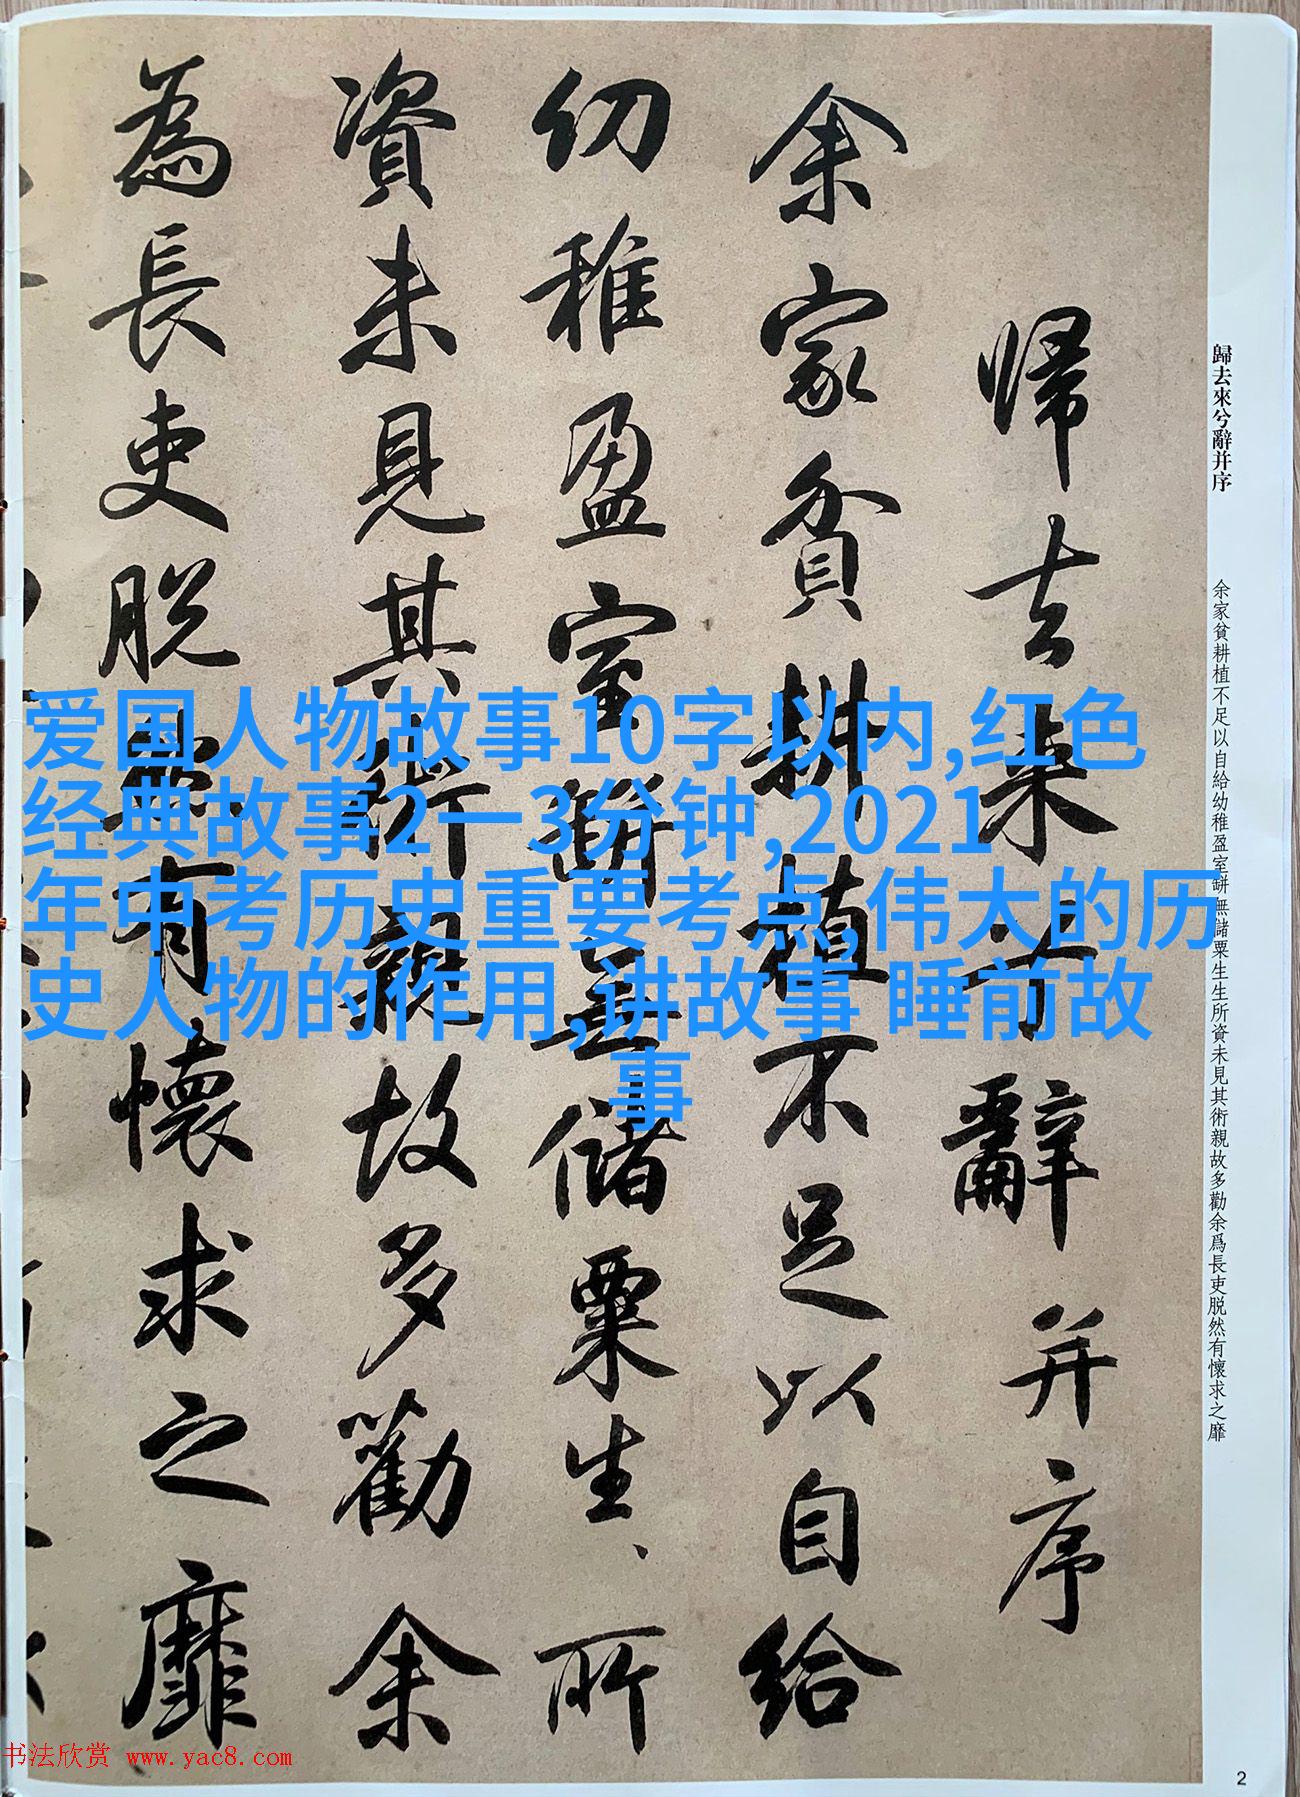 歸去來兮辭并序
余家貧耕植不足以自給幼稚盈室缾無儲粟生生所資未見其術親故多勸余爲長吏脱然有懷求之靡
帰去来兮辭并序
余家貧耕植不足以自給
幼稚盈室缾無儲粟生、所
資未見其術親故多勸余
為長吏脱然有懷求之靡
爱国人物故事10字以内,红色
经典故事2一3分钟,2021
年中考历史重要考点,伟大的历
史人物的作用,讲故事 睡前故
事
书法欣赏 www.yac8.com
2